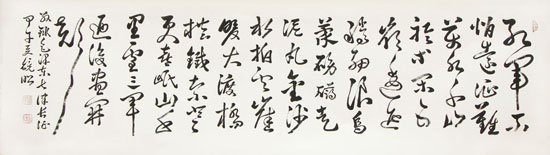 紅軍不
怕遠征難
萬水千山
只等閒五
嶺逶迤
騰細浪烏
蒙磅礴走
泥丸金沙
水拍雲崖
暖大渡橋
橫鐵索寒
更喜岷山千
里雪三軍
過後盡開
顏
敬錄毛澤東七律長征
甲午